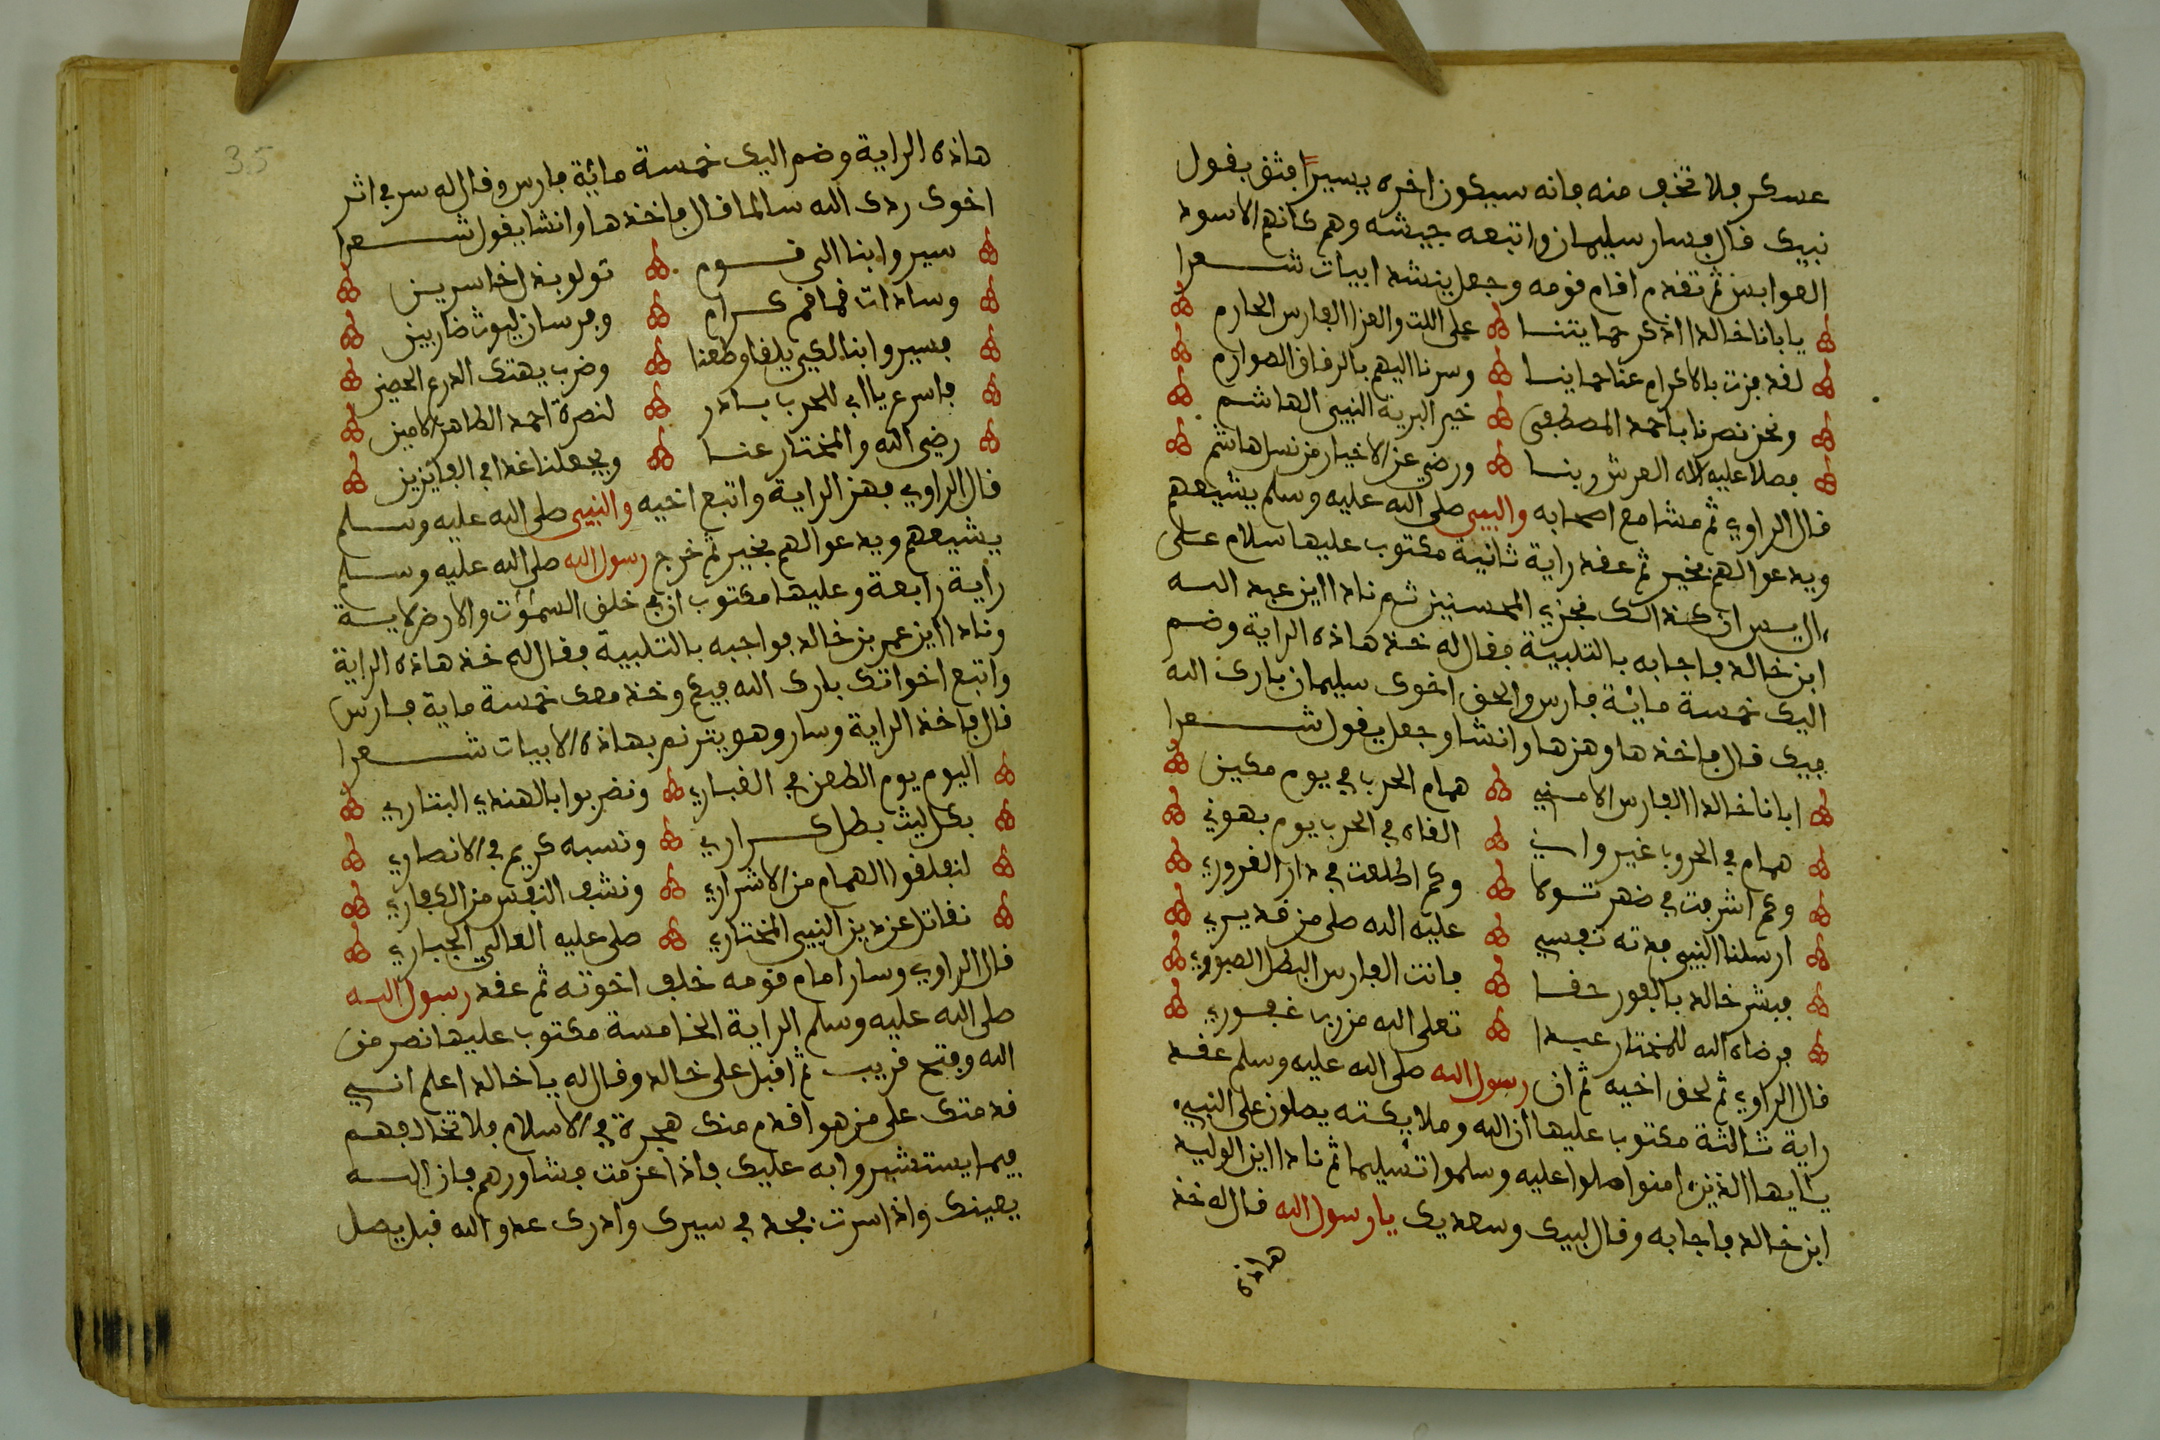 عسكر فلا تخف منه فانه سيكون اخره يسيرا فثق بقول
نبيك قال فسار سليمان واتبعه جيشه وهم كانهم الاسود
العوابس ثم تقدم اقام قومه وجعل ينشد ابيات شعرا
يا بانا خالدا اذكر حمايتنا على اللت والعزا الفارس الحارم
لقد فزت بالاكرام عنا حماينا وسرنا اليهم بالرقاق الصوارم
ونحن نصرنا باحمد المصطفى خير البرية النبي الهاشم
فصلا عليه اله العرش ربنا ورضي عن الاخيار من نسل هاشم
قال الراوي ثم مشا مع اصحابه والنبي صلى الله عليه وسلم يشيعهم
ويدعوا لهم بخير ثم عقد راية ثانية مكتوب عليها سلام على
ال يس ان كذالك نجزي المحسنين ثم نادا اين عبد الله
ابن خالد فاجابه بالتلبية فقال له خذ هاذه الراية وضم
اليك خمسة مائة فارس والحق اخوك سليمان بارك الله
فيك قال فاخذها وهزها وانشا وجعل يقول شعرا
ابانا خالدا الفارس الامني همام الحرب في يوم مكين
همام في الحروب غير واني القاه في الحرب يوم بهوني
وكم اشرفت في ضهر تولا وكم اطلعت في دار الغروري
ارسلنا النبي فدته نفسي عليه الله صلى من قديري
فبشر خالد بالفور حقا فانت الفارس البطل الصبوري
فرضاه الله للمختار عبدا تعلى الله من ربا غفوري
قال الراوي ثم لحق اخيه ثم ان رسول الله صلى الله عليه وسلم عقد
راية ثالثة مكتوب عليها ان الله وملايكته يصلون على النبي
يايها الذين امنوا صلوا عليه وسلموا تسليما ثم نادا اين الوليد
ابن خالد فاجابه وقال لبيك وسعديك يا رسول الله قال له خذ
هاذه
35
هاذه الراية وضم اليك خمسة مائة فارس وقال له سر في اثر
اخوك ردك الله سالما قال فاخذها وانشا يقول شعرا
سيروا بنا الى قوم تولو بغدا خاسرين
وسادات قماقم كرام وفرسان ليوث ضاربين
فسيروا بنا لكي يلقا وطعنا وضرب يهتك الدرع الحصن
فاسرع يا ابي للحرب بادر لنصرة احمد الطاهر الامين
رضي الله والمختار عنا ويجعلنا غدا في الفايزين
قال الراوي فهز الراية واتبع اخيه والنبي صلى الله عليه وسلم
يشيعهم ويدعوا لهم بخير ثم خرج رسول الله صلى الله عليه وسلم
راية رابعة وعليها مكتوب ان في خلق السموت والارض لاية
ونادا اين عمر بن خالد فواجبه بالتلبية فقال له خذ هاذه الراية
واتبع اخواتك بارك الله فيكم وخذ معك خمسة ماية فارس
قال فاخذ الراية وسار وهو يترنم بهاذه الابيات شعرا
اليوم يوم الطعن في الغباري ونضربوا بالهندي البتاري
بكل ليث بطل كراري ونسبه كريم في الانصاري
لنفلقوا الهمام من الاشراري ونشف النفس من الكفاري
نقاتل عن دين النبي المختاري صلى عليه العالي الجباري
قال الراوي وسار امام قومه خلف اخوته ثم عقد رسول الله
صلى الله عليه وسلم الراية الخامسة مكتوب عليها نصر من
الله وفتح قريب ثم اقبل على خالد وقال له يا خالد اعلم اني
قدمتك على من هو اقدم منك هجرة في الاسلام فلا تخالفهم
فيما يستشيروا به عليك فاذا عزمت فشاورهم فان الله
يعينك واذا سرت فجد في سيرك وادرك عدو الله قبل يصل